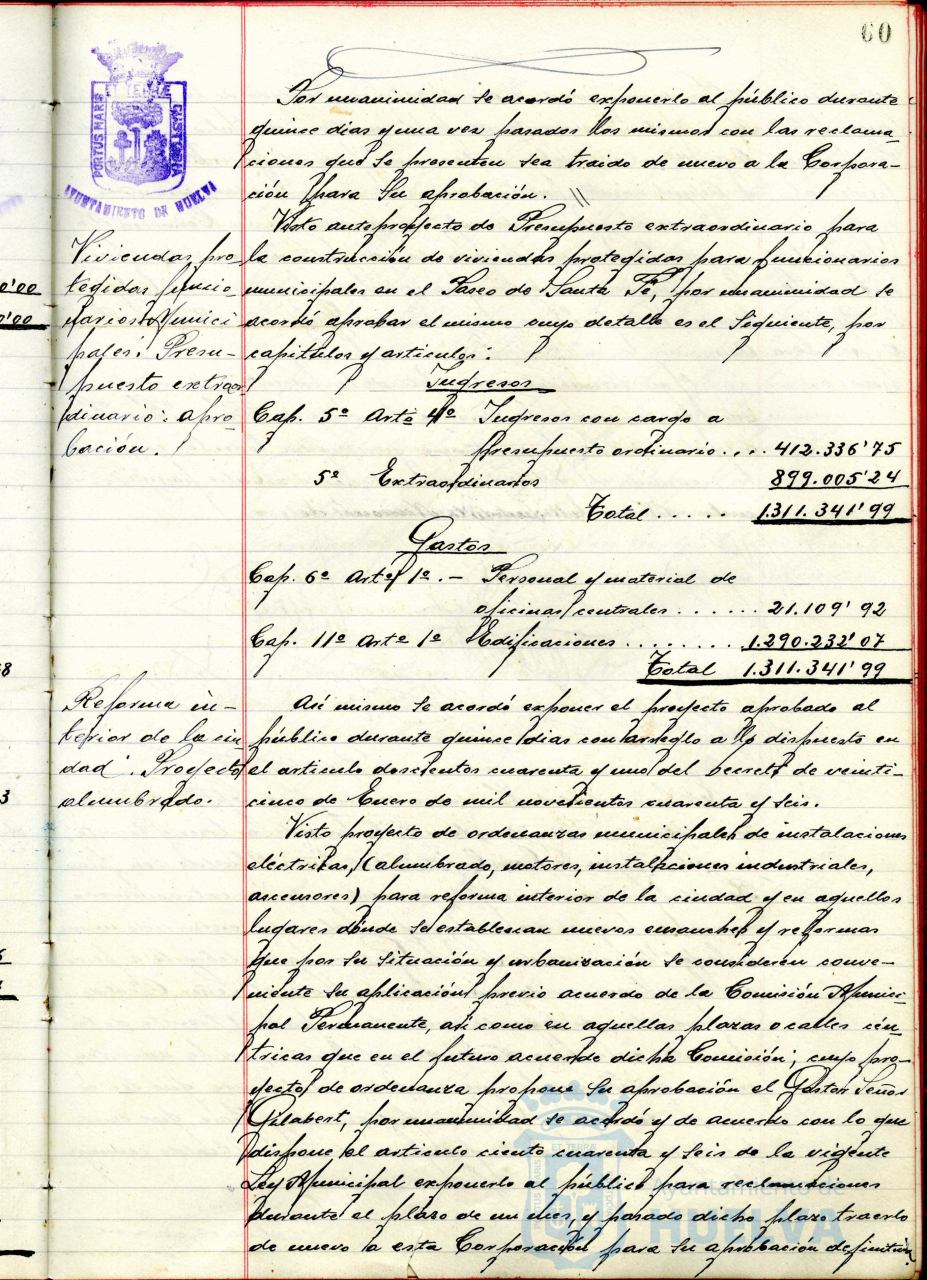 60
PORTUS MARIS ET TERRE CUSTODIA
AYUNTAMIENTO DE HUELVA
Por unanimidad se acordó exponerlo al público durante
quince días y una vez pasados los mismos con las reclama-
ciones que se presenten sea traido de nuevo a la Corpora-
ción para su aprobación. //
Viviendas pro-
tegidas funcio-
narios Munici-
pales: Presu-
puesto extraor
dinario: apro-
bación.
Visto anteproyecto de Presupuesto extraordinario para
la construcción de viviendas protegidas para funcionarios
municipales en el Paseo de Santa Fé, por unanimidad se
acordó aprobar el mismo cuyo detalle es el siguiente, por
capitulos y articulos:
Ingresos
Cap. 5º Artº 4º Ingresos con cargo a
presupuesto ordinario .... 412.336'75
5º Extraordinarios 899.005'24
Total ..... 1.311.341'99
Gastos
Cap. 6º Artº 1º.- Personal y material de
oficinas centrales ...... 21.109'92
Cap. 11º Artº 1º Edificaciones ........ 1.290.232'07
Total 1.311.341'99
Reforma in-
terior de la ciu
dad. Proyecto
alumbrado.
Así mismo se acordó exponer el proyecto aprobado al
público durante quince dias con arreglo a lo dispuesto en
el articulo doscientos cuarenta y uno del Decreto de veinti-
cinco de Enero de mil novecientos cuarenta y seis.
Visto proyecto de ordenanzas municipales de instalaciones
eléctricas, (alumbrado, motores, instalaciones industriales,
ascensores) para reforma interior de la ciudad y en aquellos
lugares dónde se establezcan nuevos ensanches y reformas
que por su situación y urbanización se consideren conve-
niente su aplicación previo acuerdo de la Comisión Munici-
pal Permanente, así como en aquellas plazas o calles cén-
tricas que en el futuro acuerde dicha Comisión; cuyo pro-
yecto de ordenanza propone su aprobación el Gestor Señor
Gilabert, por unanimidad se acordó y de acuerdo con lo que
dispone el articulo ciento cuarenta y seis de la vigente
Ley Municipal exponerlo al público para reclamaciones
durante el plazo de un mes, y pasado dicho plazo traerlo
de nuevo a esta Corporación para su aprobación definitiva.
Ayuntamiento de
HUELVA
0'00
0'00
8
3